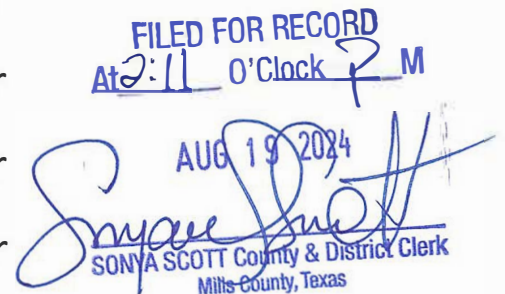 FILED FOR RECORD
At 2:11 O'Clock P M
AUG 19 2024
SONYA SCOTT County & District Clerk
Mills County, Texas